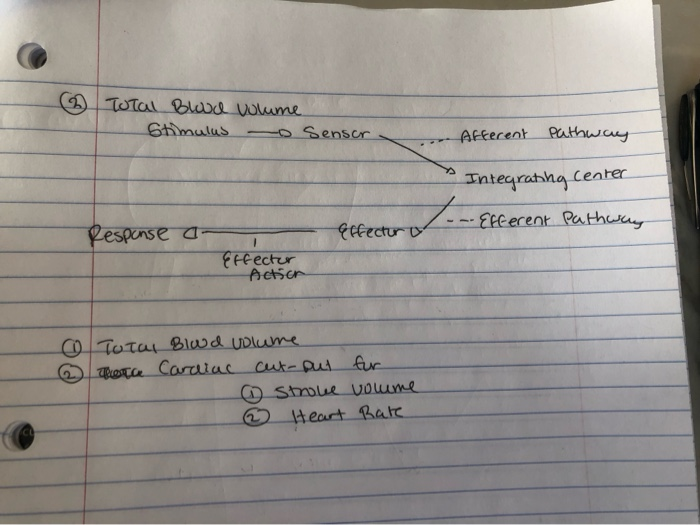 ② Total Blood Volume
Stimulus → Sensor
.... Afferent Pathway
Integrating Center
--- Efferent Pathway
Response ← Effector
Effector
Action
① Total Blood Volume
② Cardiac out-put for
① Stroke volume
② Heart Rate